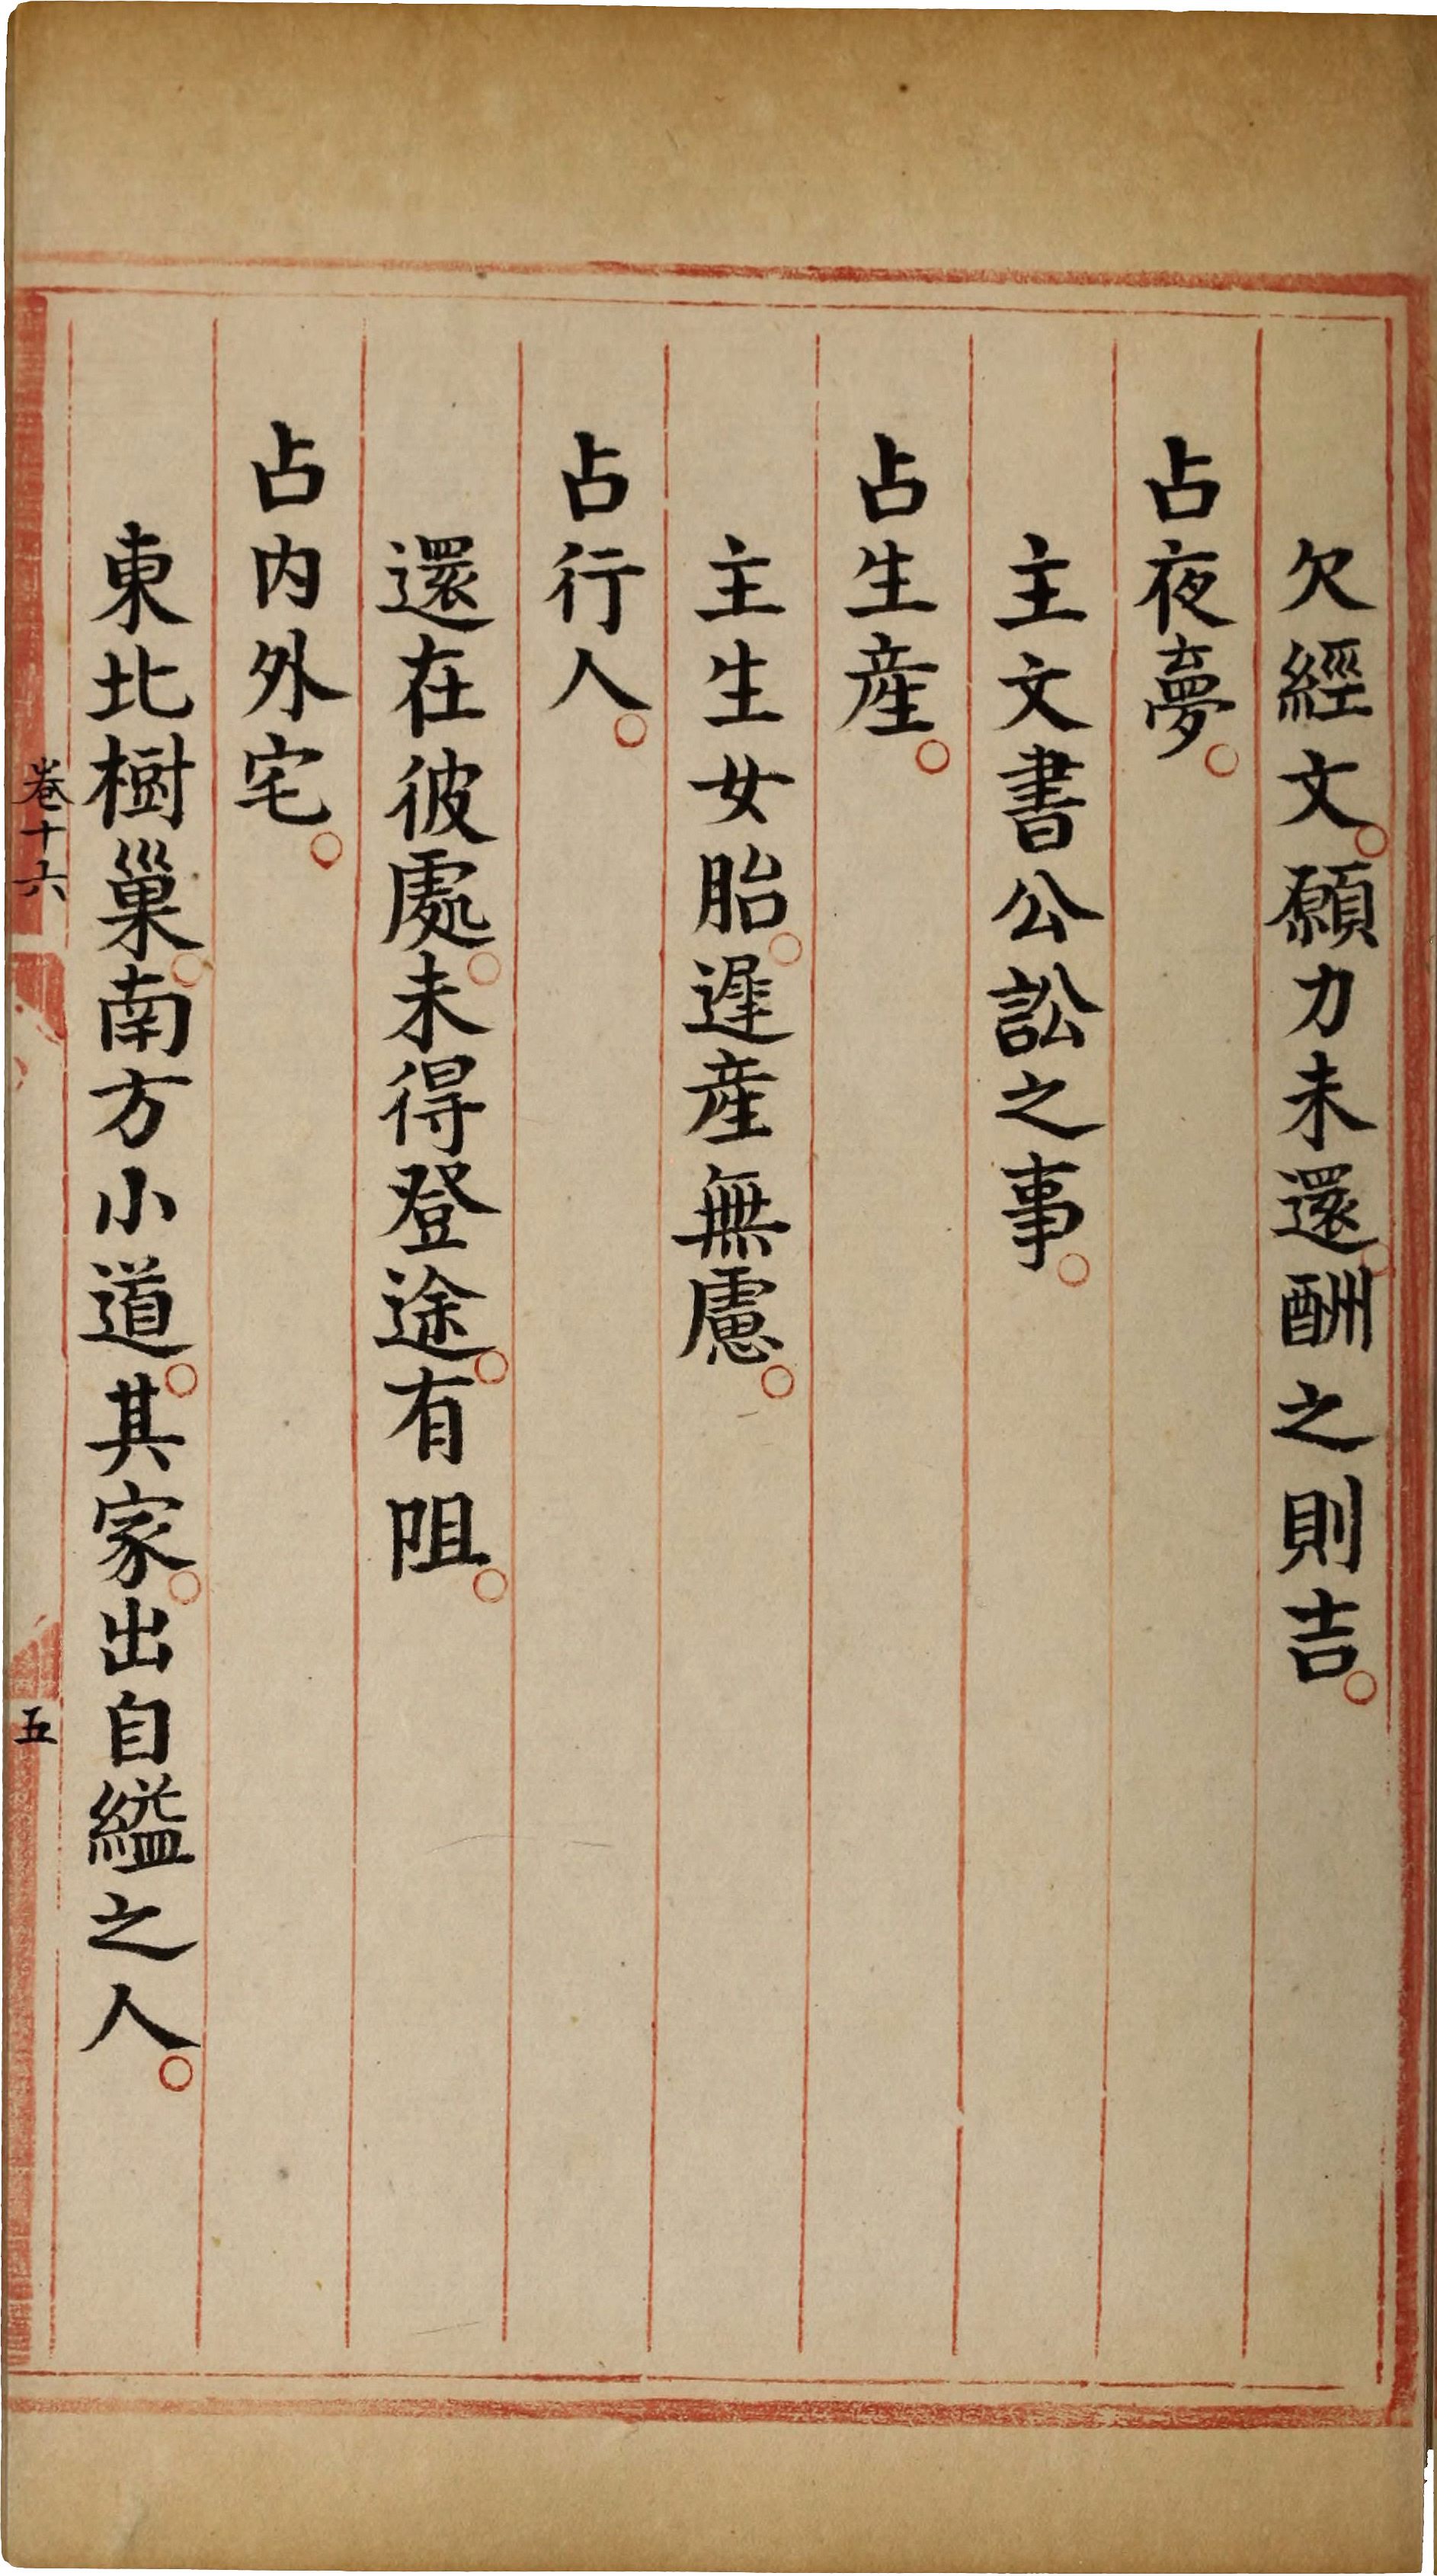 欠經文。願力未還。酬之則吉。
占夜夢。
主文書公訟之事。
占生産。
主生女胎。遲産無慮。
占行人。
還在彼處。未得登途。有阻。
占内外宅。
東北樹巢。南方小道。其家。出自縊之人。
卷十六
五